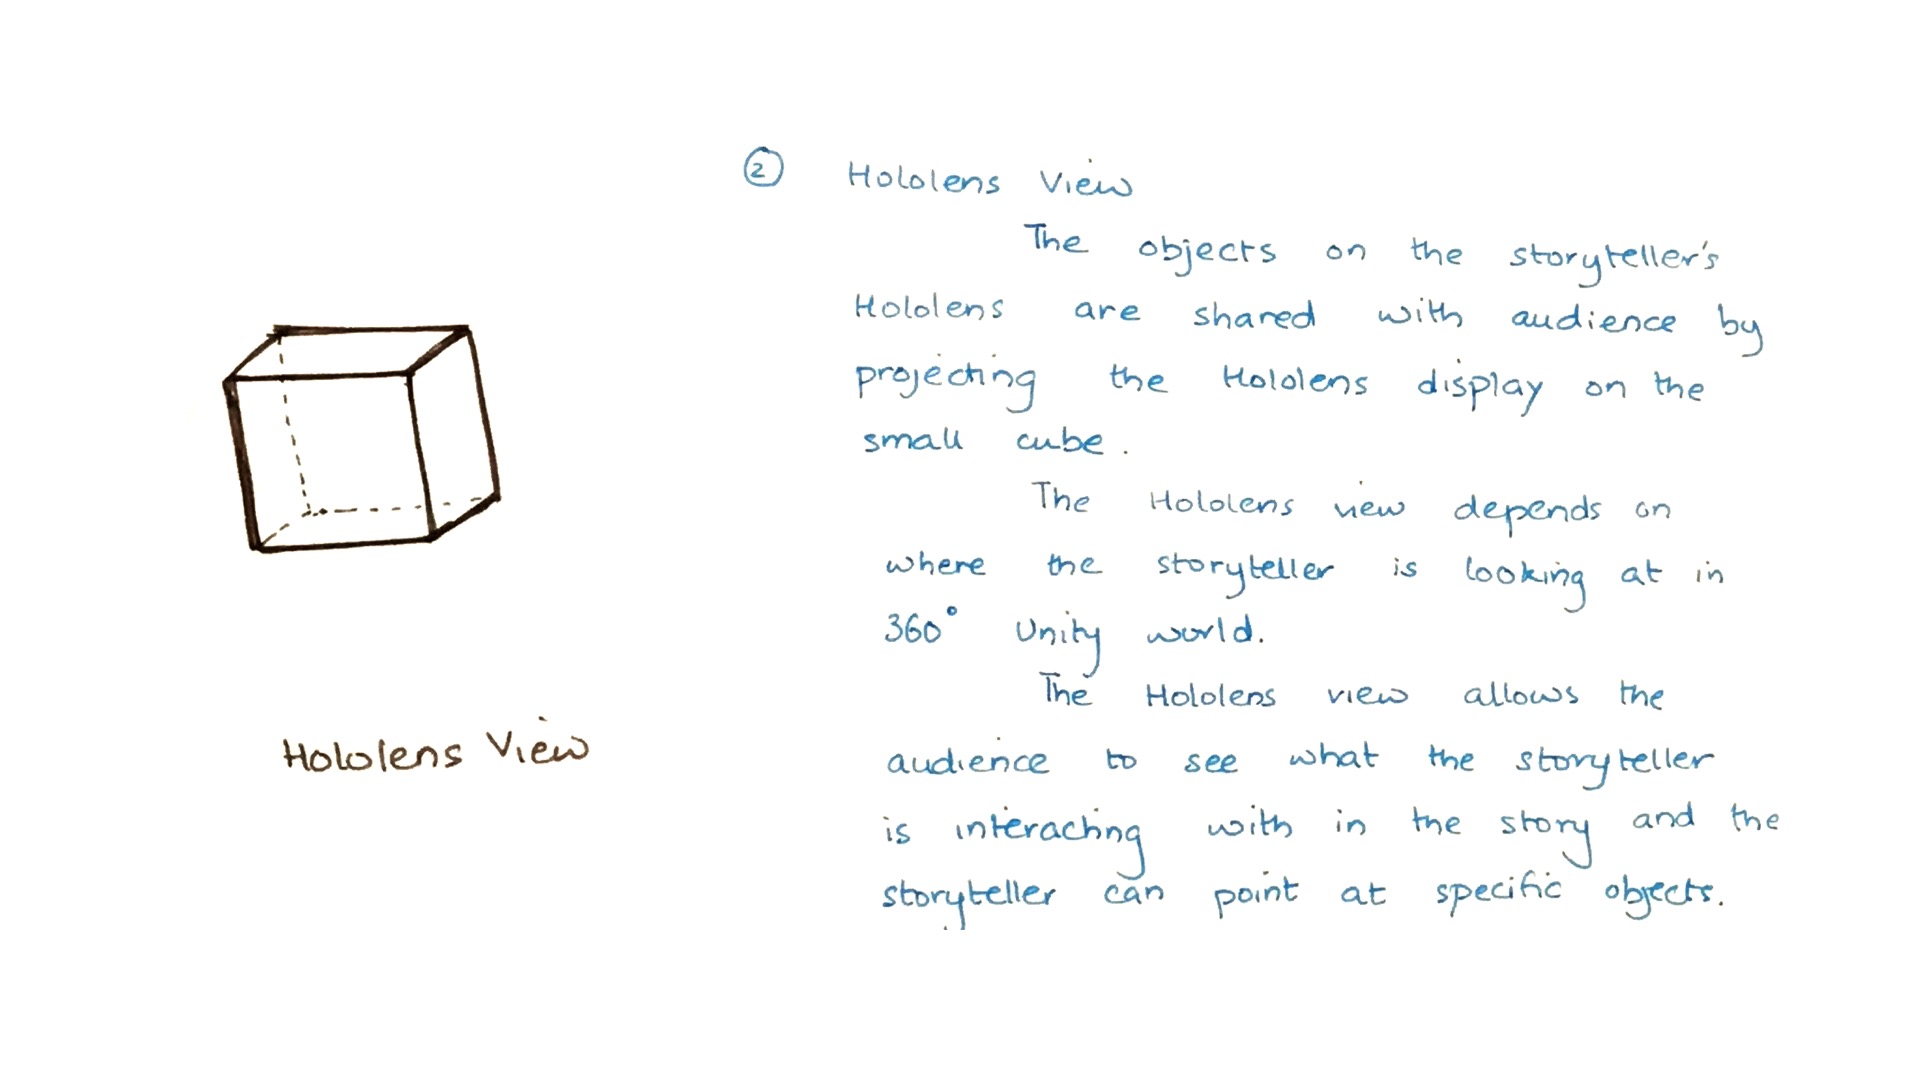 ② Hololens View
The objects on the storyteller's
Hololens are shared with audience by
projecting the Hololens display on the
small cube.
The Hololens view depends on
where the storyteller is looking at in
360° Unity world.
The Hololens view allows the
audience to see what the storyteller
is interacting with in the story and the
storyteller can point at specific objects.
Hololens View